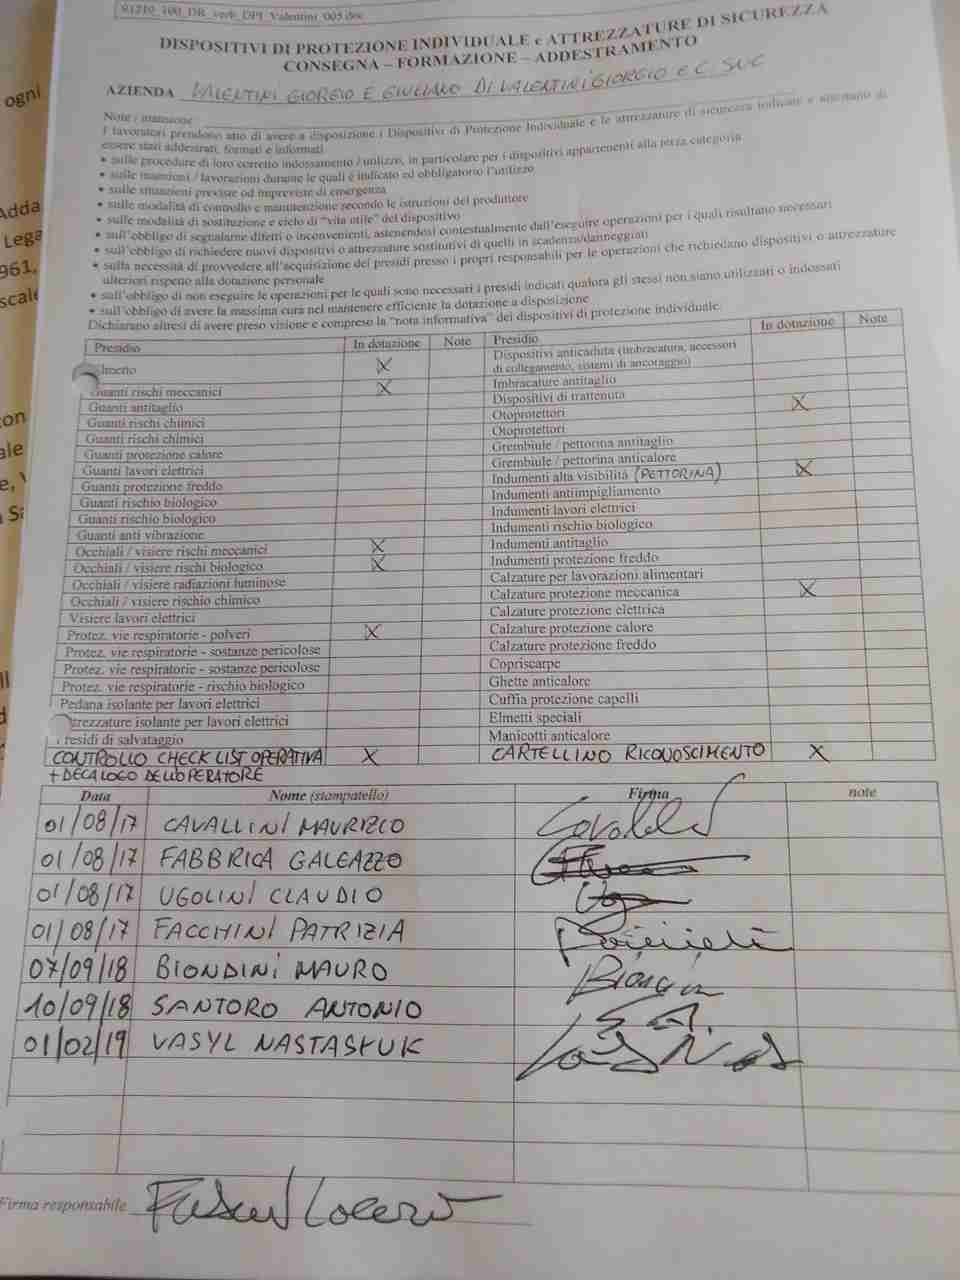 91210_100_DR_verb_DPI_Valentini_005.doc
DISPOSITIVI DI PROTEZIONE INDIVIDUALE e ATTREZZATURE DI SICUREZZA
CONSEGNA – FORMAZIONE – ADDESTRAMENTO
AZIENDA VALENTINI GIORGIO E GIULIANO DI VALENTINI GIORGIO E C. SNC
Note / mansione
I lavoratori prendono atto di avere a disposizione i Dispositivi di Protezione Individuale e le attrezzature di sicurezza indicate e attestano di
essere stati addestrati, formati e informati
• sulle procedure di loro corretto indossamento / utilizzo, in particolare per i dispositivi appartenenti alla terza categoria
• sulle mansioni / lavorazioni durante le quali è indicato ed obbligatorio l'utilizzo
• sulle situazioni previste od impreviste di emergenza
• sulle modalità di controllo e manutenzione secondo le istruzioni del produttore
• sulle modalità di sostituzione e ciclo di "vita utile" del dispositivo
• sull'obbligo di segnalarne difetti o inconvenienti, astenendosi contestualmente dall'eseguire operazioni per i quali risultano necessari
• sull'obbligo di richiedere nuovi dispositivi o attrezzature sostitutivi di quelli in scadenza/danneggiati
• sulla necessità di provvedere all'acquisizione dei presidi presso i propri responsabili per le operazioni che richiedano dispositivi o attrezzature
ulteriori rispetto alla dotazione personale
• sull'obbligo di non eseguire le operazioni per le quali sono necessari i presidi indicati qualora gli stessi non siano utilizzati o indossati
• sull'obbligo di avere la massima cura nel mantenere efficiente la dotazione a disposizione
Dichiarano altresì di avere preso visione e compreso la "nota informativa" dei dispositivi di protezione individuale.
Presidio In dotazione Note Presidio In dotazione Note
lmetto X Dispositivi anticaduta (imbracatura, accessori
di collegamento, sistemi di ancoraggio)
Guanti rischi meccanici X Imbracature antitaglio
Guanti antitaglio Dispositivi di trattenuta
Guanti rischi chimici Otoprotettori X
Guanti rischi chimici Otoprotettori
Guanti protezione calore Grembiule / pettorina antitaglio
Guanti lavori elettrici Grembiule / pettorina anticalore
Guanti protezione freddo Indumenti alta visibilità (PETTORINA) X
Guanti rischio biologico Indumenti antiimpigliamento
Guanti rischio biologico Indumenti lavori elettrici
Guanti anti vibrazione Indumenti rischio biologico
Occhiali / visiere rischi meccanici X Indumenti antitaglio
Occhiali / visiere rischi biologico X Indumenti protezione freddo
Occhiali / visiere radiazioni luminose Calzature per lavorazioni alimentari
Occhiali / visiere rischio chimico Calzature protezione meccanica X
Visiere lavori elettrici Calzature protezione elettrica
Protez. vie respiratorie - polveri X Calzature protezione calore
Protez. vie respiratorie - sostanze pericolose Calzature protezione freddo
Protez. vie respiratorie - sostanze pericolose Copriscarpe
Protez. vie respiratorie - rischio biologico Ghette anticalore
Pedana isolante per lavori elettrici Cuffia protezione capelli
ttrezzature isolante per lavori elettrici Elmetti speciali
Presidi di salvataggio Manicotti anticalore
CONTROLLO CHECK LIST OPERATIVA X CARTELLINO RICONOSCIMENTO X
+ DECALOGO DELL'OPERATORE
Data Nome (stampatello) Firma note
01/08/17 CAVALLINI MAURIZIO
01/08/17 FABBRICA GALEAZZO
01/08/17 UGOLINI CLAUDIO
01/08/17 FACCHINI PATRIZIA
07/09/18 BIONDINI MAURO
10/09/18 SANTORO ANTONIO S.A.
01/02/19 VASYL NASTASIUK
Firma responsabile
ogni
Adda
Lega
961,
scale